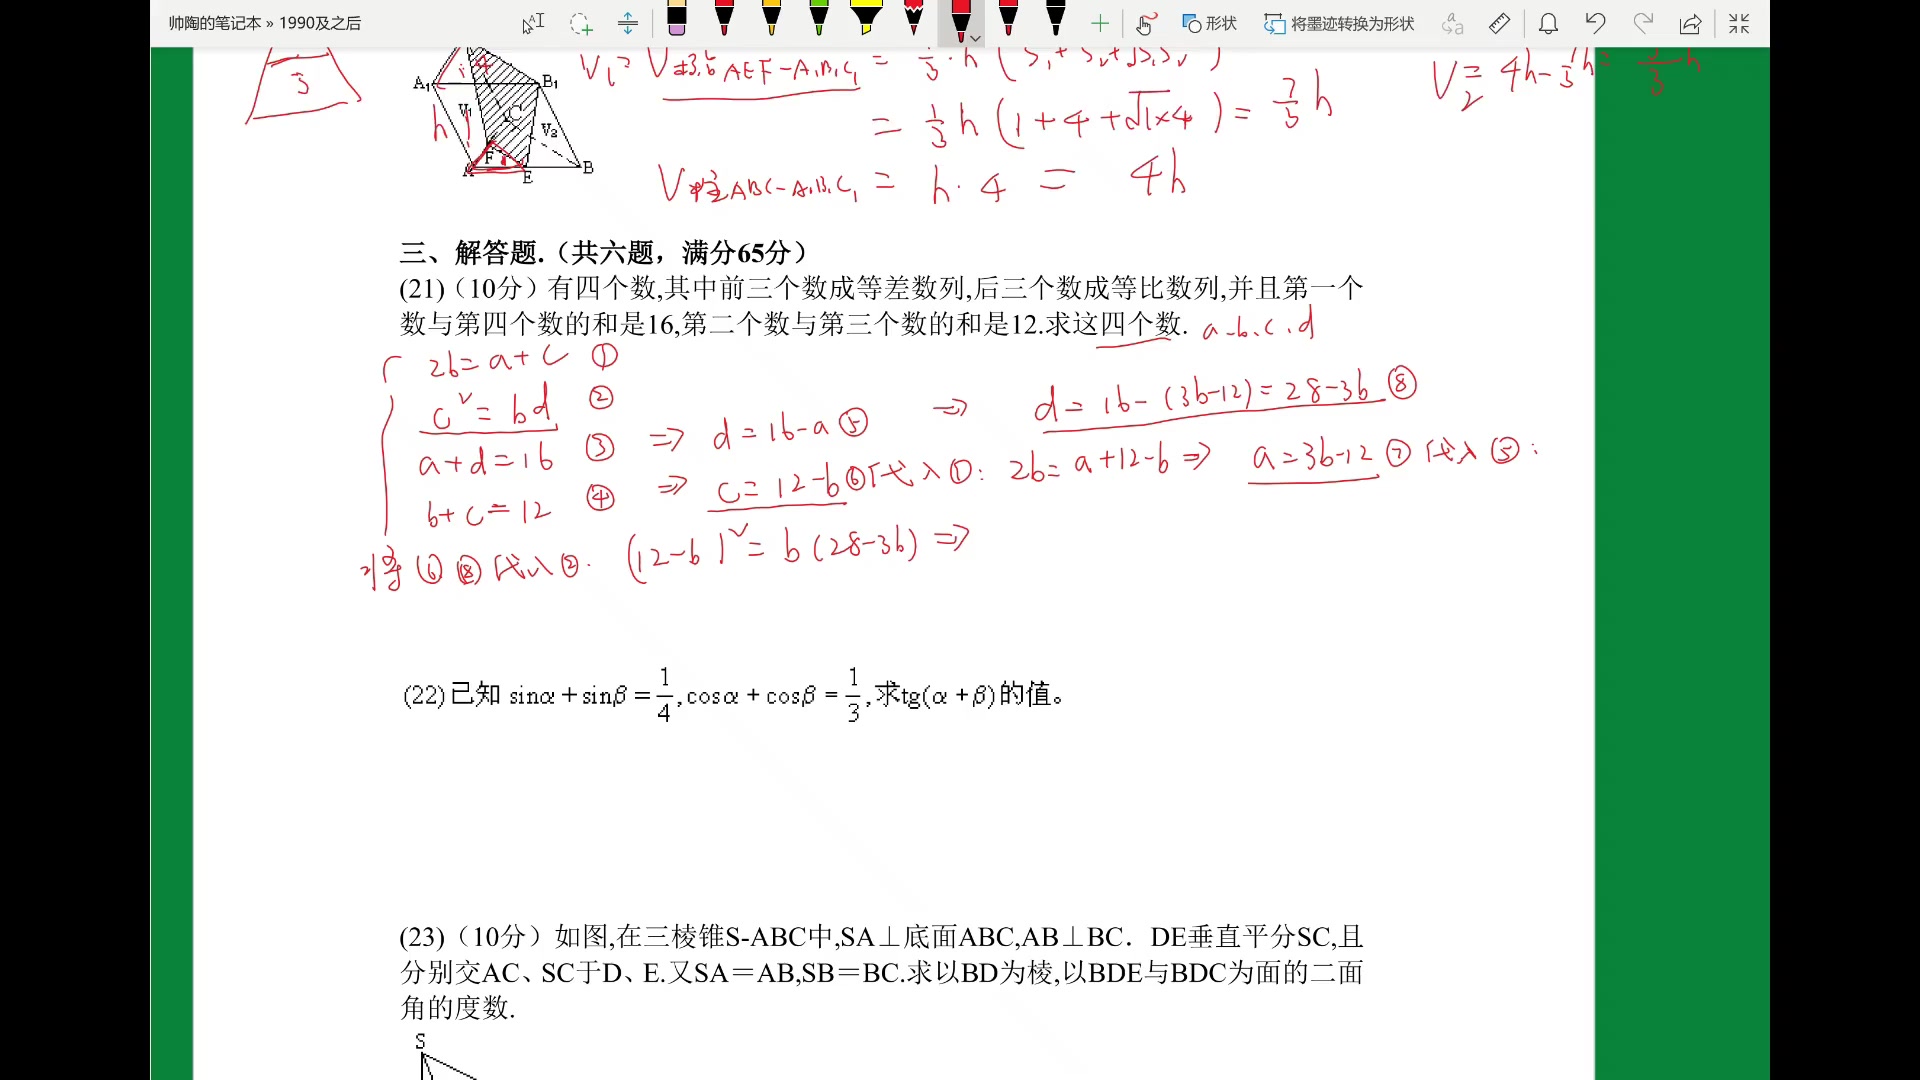 帅陶的笔记本 » 1990及之后
形状
将墨迹转换为形状
A₁ B₁ V₁ C V₂ F A E B h 4 1
V₁= V棱台AEF-A₁B₁C₁ = 1/3·h (S₁+S₂+√S₁S₂)
V₂= 4h-7/3h=5/3h
= 1/3h (1+4+√1×4)= 7/3h
V柱ABC-A₁B₁C₁ = h·4 = 4h
三、解答题.（共六题，满分65分）
(21)（10分）有四个数,其中前三个数成等差数列,后三个数成等比数列,并且第一个
数与第四个数的和是16,第二个数与第三个数的和是12.求这四个数. a.b.c.d
2b=a+c ①
c²=bd ②
a+d=16 ③ ⇒ d=16-a ⑤ ⇒ d=16-(3b-12)=28-3b ⑧
b+c=12 ④ ⇒ c=12-b ⑥代入①: 2b=a+12-b ⇒ a=3b-12 ⑦代入⑤:
将⑥⑧代入②. (12-b)²=b(28-3b) ⇒
(22)已知 sinα+sinβ=1/4,cosα+cosβ=1/3,求tg(α+β)的值。
(23)（10分）如图,在三棱锥S-ABC中,SA⊥底面ABC,AB⊥BC．DE垂直平分SC,且
分别交AC、SC于D、E.又SA＝AB,SB＝BC.求以BD为棱,以BDE与BDC为面的二面
角的度数.
S